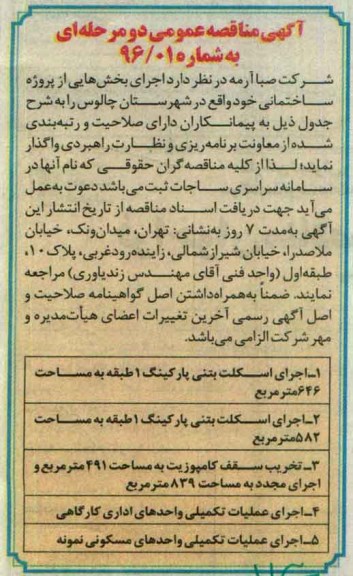 آگهی مناقصه عمومی دو مرحله‌ای
به شماره ۹۶/۰۱
شرکت صبا آرمه در نظر دارد اجرای بخش‌هایی از پروژه
ساختمانی خود واقع در شهرستان چالوس را به شرح
جدول ذیل به پیمانکاران دارای صلاحیت و رتبه‌بندی
شده از معاونت برنامه‌ریزی و نظارت راهبردی واگذار
نماید؛ لذا از کلیه مناقصه‌گران حقوقی که نام آنها در
سامانه سراسری ساجات ثبت می‌باشد دعوت به عمل
می‌آید جهت دریافت اسناد مناقصه از تاریخ انتشار این
آگهی به مدت ۷ روز به نشانی: تهران، میدان ونک، خیابان
ملاصدرا، خیابان شیراز شمالی، زاینده‌رود غربی، پلاک ۱۰،
طبقه اول (واحد فنی آقای مهندس زندیاوری) مراجعه
نمایند. ضمناً به همراه داشتن اصل گواهینامه صلاحیت و
اصل آگهی رسمی آخرین تغییرات اعضای هیأت‌مدیره و
مهر شرکت الزامی می‌باشد.
۱ـ اجرای اسکلت بتنی پارکینگ ۱ طبقه به مساحت
۶۴۶ مترمربع
۲ـ اجرای اسکلت بتنی پارکینگ ۱ طبقه به مساحت
۵۸۲ مترمربع
۳ـ تخریب سقف کامپوزیت به مساحت ۴۹۱ مترمربع و
اجرای مجدد به مساحت ۸۳۹ مترمربع
۴ـ اجرای عملیات تکمیلی واحدهای اداری کارگاهی
۵ـ اجرای عملیات تکمیلی واحدهای مسکونی نمونه